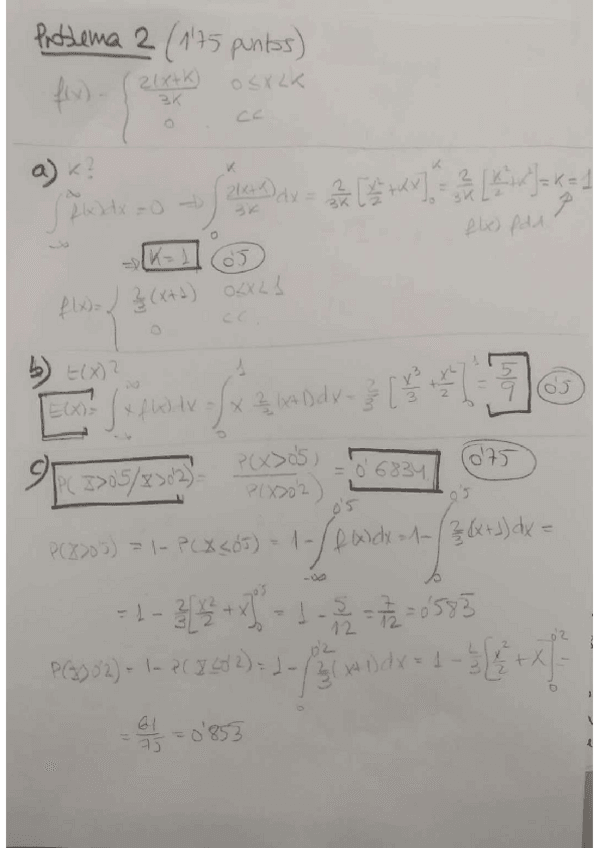 Problema 2 (1'75 puntos)
f(x) = { 2(x+K)/3K 0≤x<K
0 cc
a) K?
∫_{-∞}^{∞} f(x)dx = 0 ⇒ ∫_0^K 2(x+K)/3K dx = 2/3K [x²/2 + Kx]_0^K = 2/3K [K²/2 + K²] = K = 1
f(x) fdd
⇒ K=1 0'5
f(x) = { 2/3 (x+1) 0≤x<1
0 cc
b) E(X)?
E(X) = ∫_{-∞}^{∞} x f(x) dx = ∫_0^1 x 2/3 (x+1)dx = 2/3 [x³/3 + x²/2]_0^1 = 5/9 0'5
c) P(X>0'5/X>0'2) = P(X>0'5)/P(X>0'2) = 0'6834 0'75
P(X>0'5) = 1 - P(X≤0'5) = 1 - ∫_{-∞}^{0'5} f(x)dx = 1 - ∫_0^{0'5} 2/3 (x+1) dx =
= 1 - 2/3 [x²/2 + x]_0^{0'5} = 1 - 5/12 = 7/12 = 0'583
P(X>0'2) = 1 - P(X≤0'2) = 1 - ∫_0^{0'2} 2/3 (x+1)dx = 1 - 2/3 [x²/2 + x]_0^{0'2} =
= 61/75 = 0'853